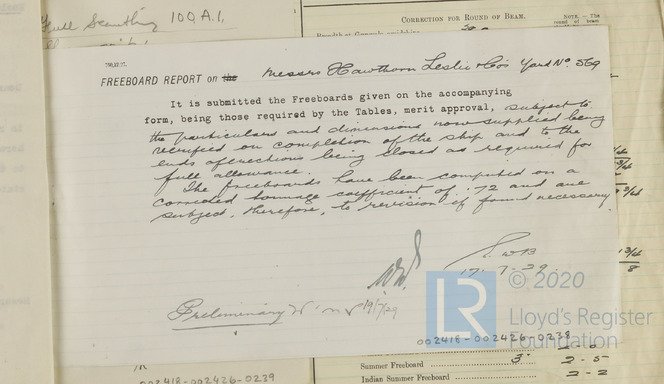 Full Scantling 100 A.1.
CORRECTION FOR ROUND OF BEAM.
NOTE - The
round of beam
700,12.27.
FREEBOARD REPORT on the Messrs Hawthorn Leslie & Co's Yard No. 569
It is submitted the Freeboards given on the accompanying
form, being those required by the Tables, merit approval, subject to
the particulars and dimensions now supplied being
verified on completion of the ship and to the
ends of erections being closed as required for
full allowance.
The freeboards have been computed on a
corrected tonnage coefficient of .72 and are
subject, therefore, to revision if found necessary.
17.7.29.
19/7/29
Preliminary
© 2020
LR
Lloyd's Register
Foundation
002418-002426-0238
Summer Freeboard 3" 2-5
Indian Summer Freeboard 2-2
002418-002426-0239